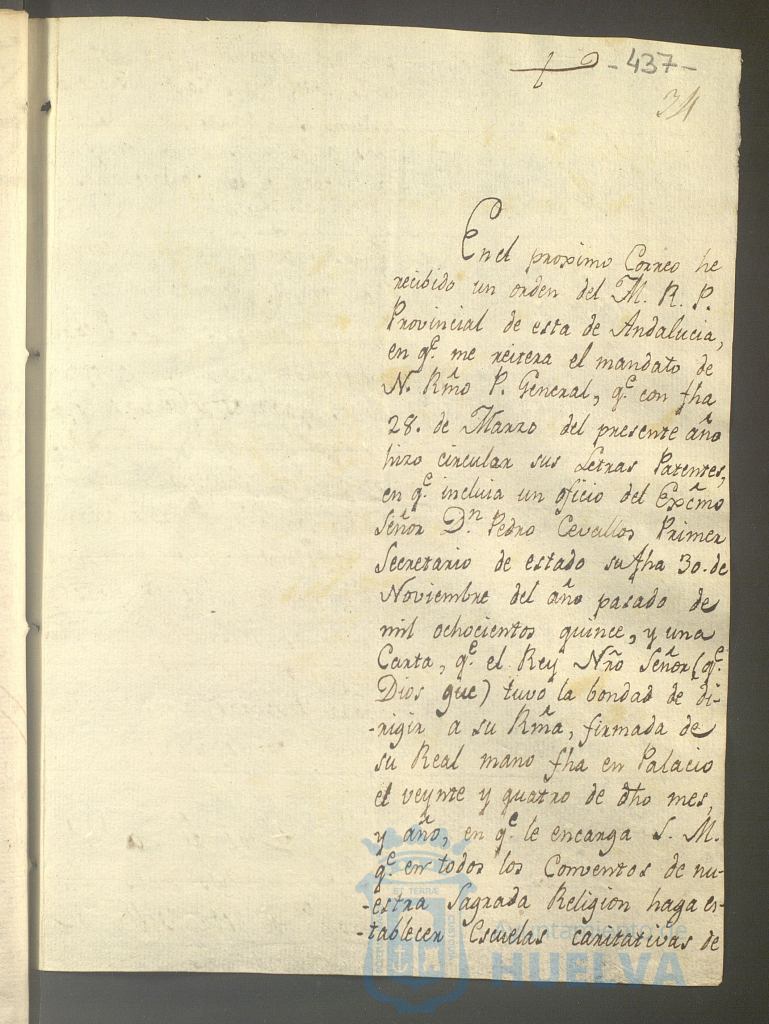 - 437 -
34
En el proximo Correo he
recibido un orden del M. R. P.
Provincial de esta de Andalucia,
en q.e me reitera el mandato de
N. Rm̃o P. General, q.e con fha
28. de Marzo del presente año
hizo circular sus Letras Patentes,
en q.e incluia un oficio del Excm̃o
Señor D.n Pedro Cevallos Primer
Secretario de estado su fha 30. de
Noviembre del año pasado de
mil ochocientos quince, y una
Carta, q.e el Rey Nr̃o Señor (q.e
Dios gue) tuvo la bondad de di-
-rigir a su Rm̃a, firmada de
su Real mano fha en Palacio
el veynte y quatro de dho mes,
y año, en q.e le encarga S. M.
q.e en todos los Conventos de nu-
-estra Sagrada Religion haga es-
-tablecer Escuelas caritativas de
Ayuntamiento de
HUELVA